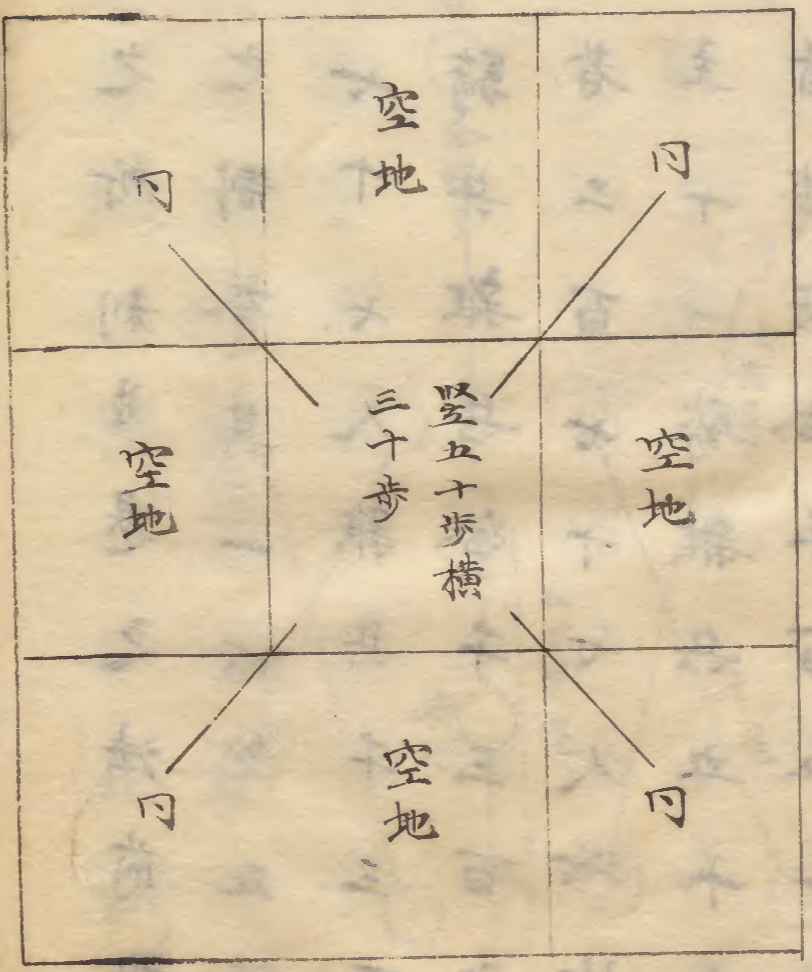 同
空地
同
空地
竪五十歩横
三十歩
空地
同
空地
同